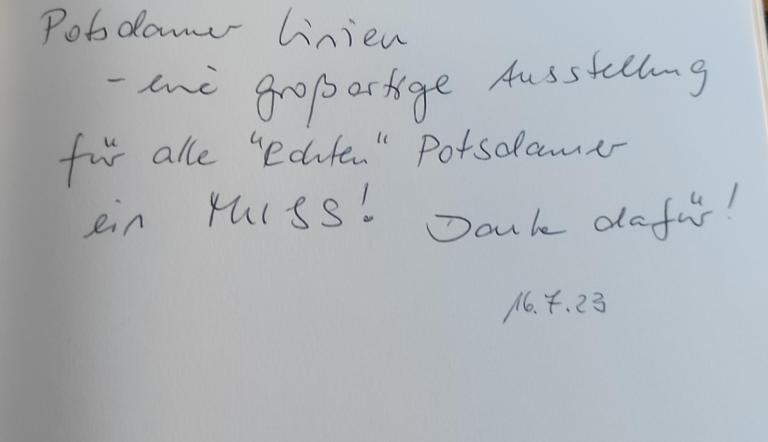 Potsdamer Linien
- eine großartige Ausstellung
für alle "Echten" Potsdamer
ein MUSS! Danke dafür!
16.7.23